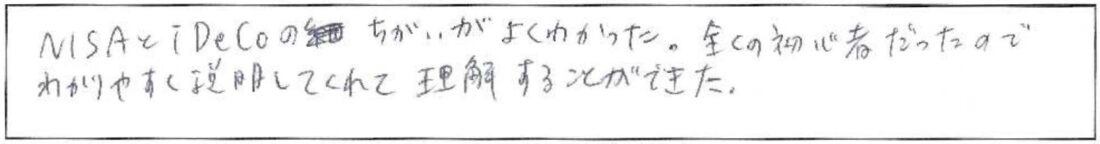 NISAとiDeCoのちがいがよくわかった。全くの初心者だったので
わかりやすく説明してくれて理解することができた。